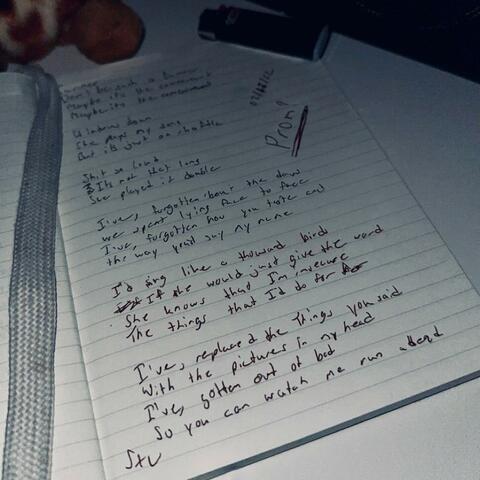 Don't be such a
Maybe it's the
Maybe it's the
Windows down
She plays my song
But it's just on shuffle
Shit so loud
It's not that long
She played it double
I've, forgotten about the days
we spent lying face to face
I've, forgotten how you taste and
the way you'd say my name
Prom?
I'd sing like a thousand birds
If she would just give the word
She knows that I'm insecure
The things that I'd do for her
I've, replaced the things you said
With the pictures in my head
I've, gotten out of bed
So you can watch me run